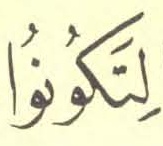 لِتَكُونُوا